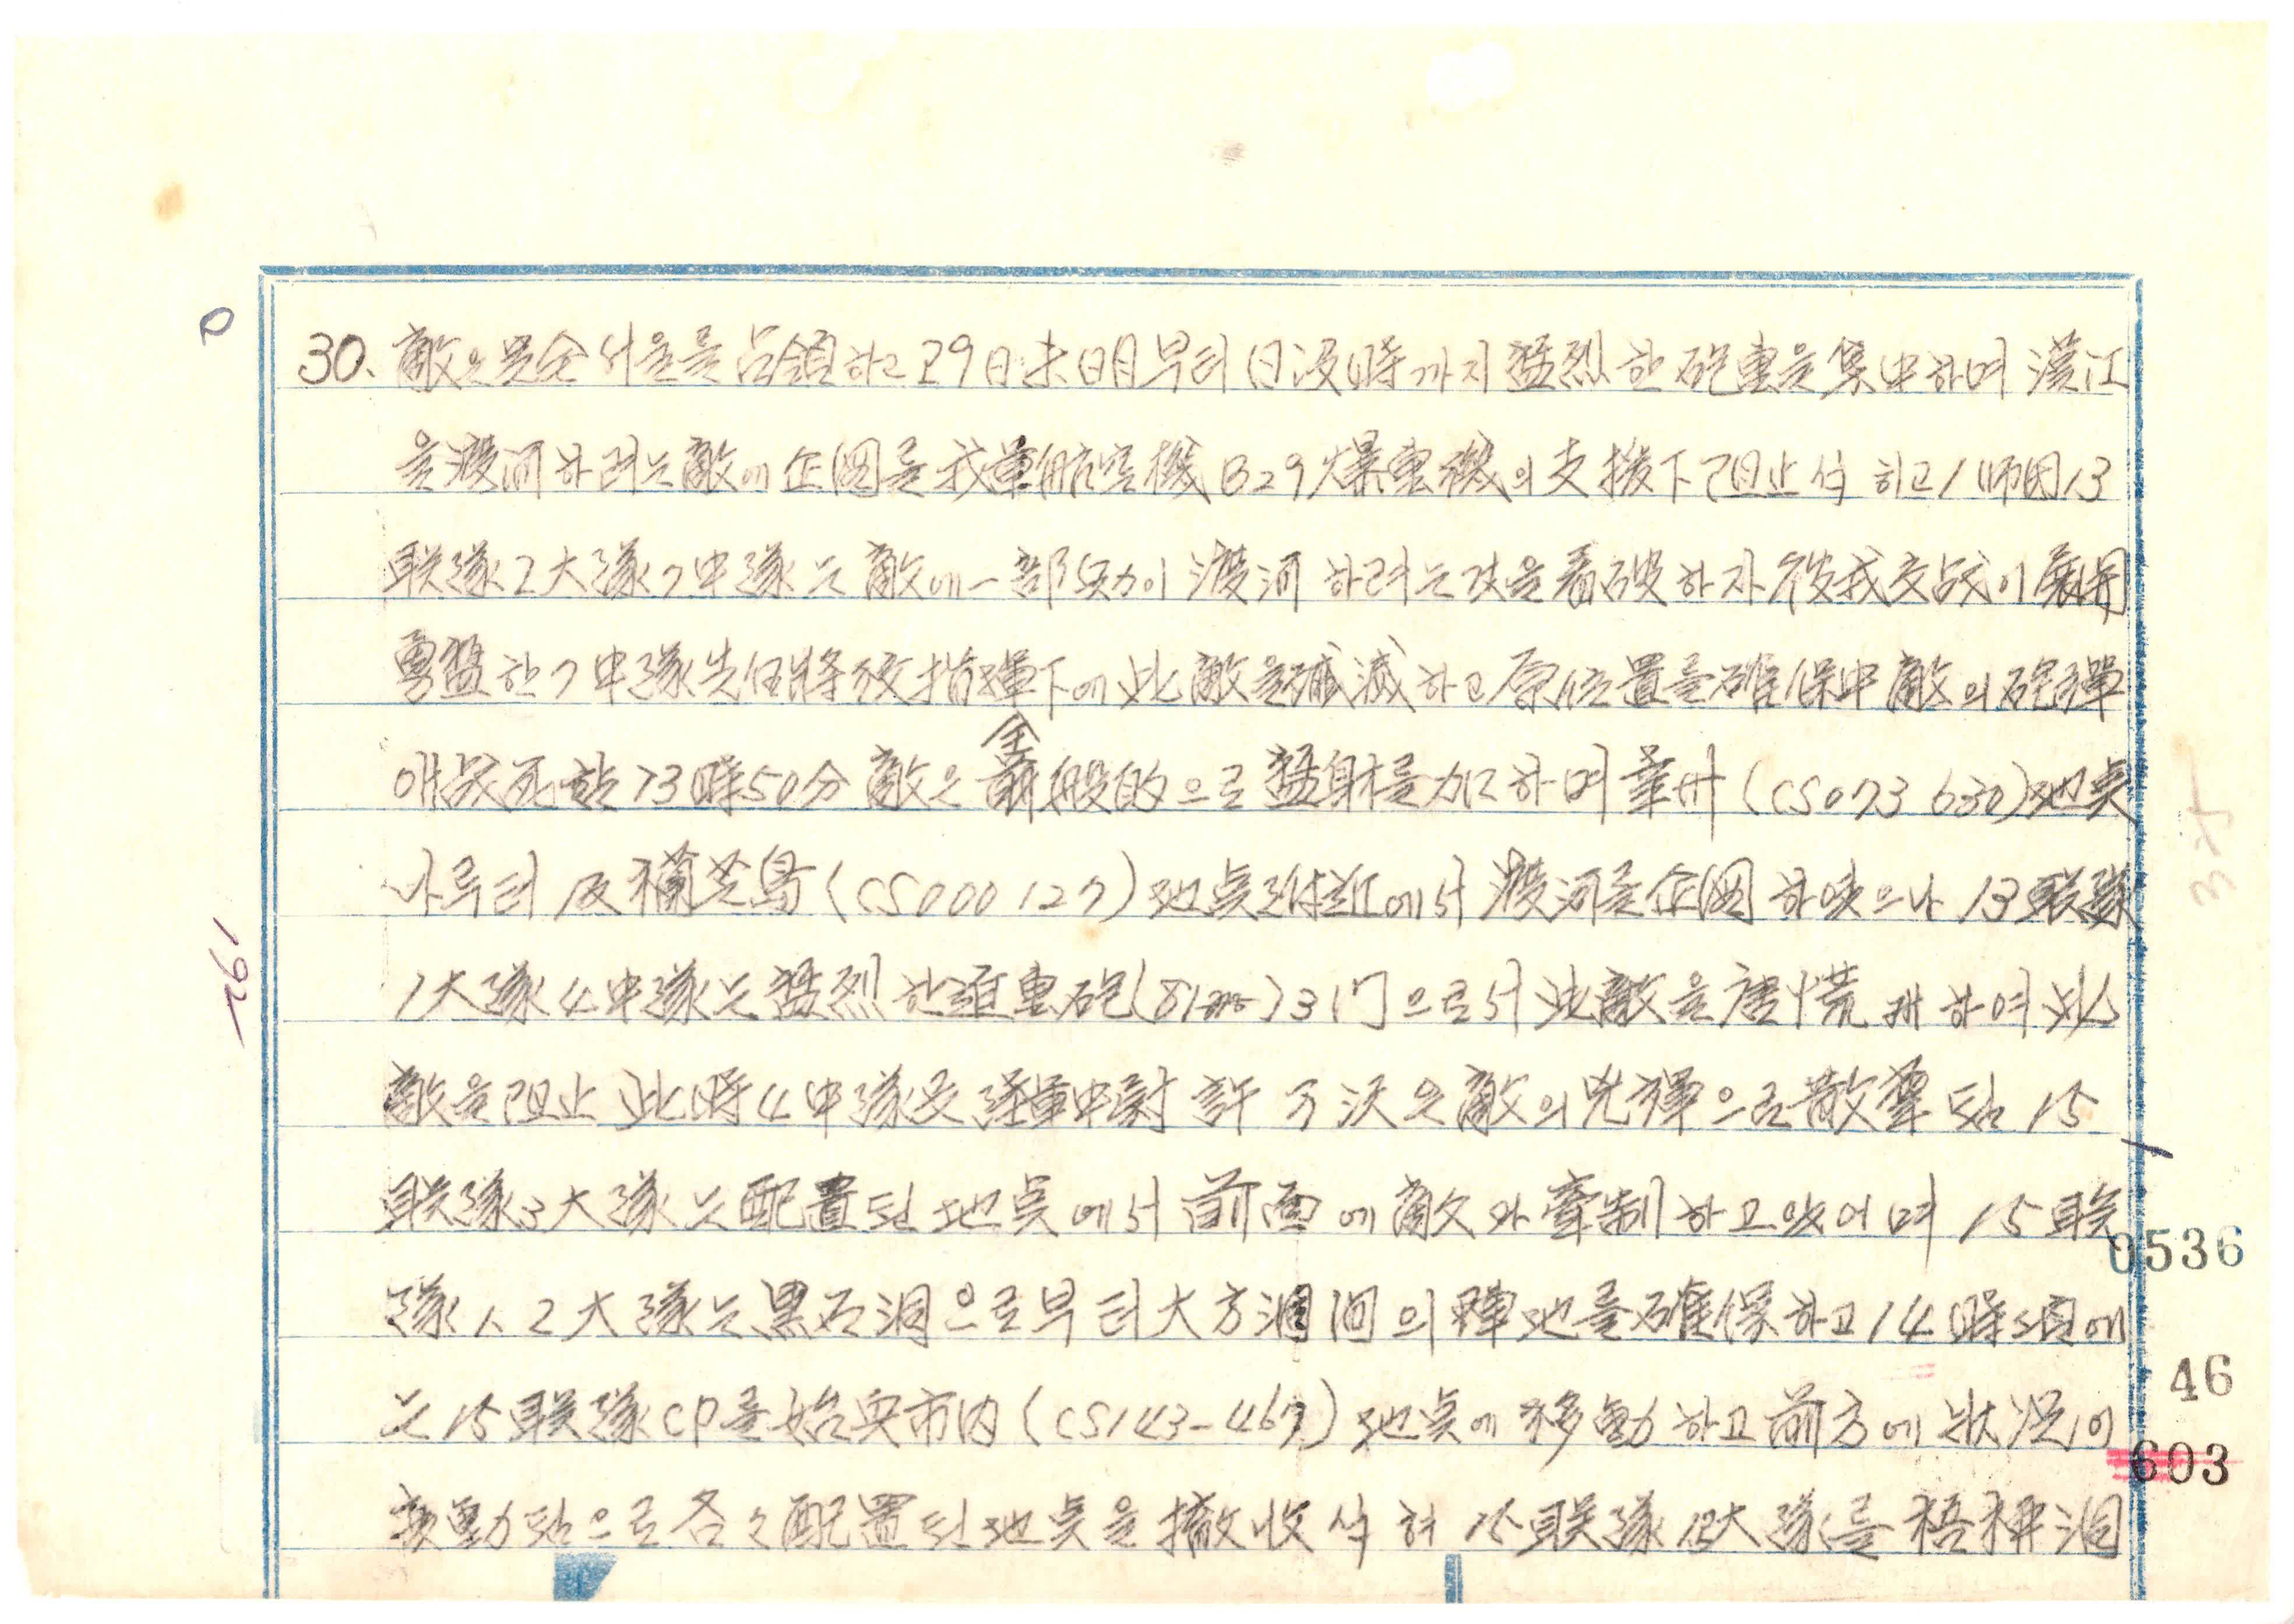 30. 敵은 完全 서울을 占領하고 29日 未明부터 日沒時까지 猛烈한 砲擊을 集中하며 漢江
을 渡河하려는 敵에 企圖를 我軍航空機 B29 爆擊機의 支援下 阻止식히고 1師團 13
联隊 2大隊 7中隊는 敵에 一部兵力이 渡河하려는 것을 看破하자 彼我交战이 展開
勇猛한 7中隊 先任將校 指揮下에 此敵을 殲滅하고 原位置를 確保中 敵의 砲彈
애 战死 13時50分 敵은 全般的으로 猛射를 加하며 幸州 (CS073 630) 地点
나루터 及 蘭芝島 (CS000 127) 地点 附近에서 渡河를 企圖하였으나 13联隊
1大隊 4中隊는 猛烈한 追擊砲(81㎜) 3門으로서 此敵을 唐慌케하여 此
敵을 阻止 此時 4中隊長 陸軍中尉 許 万 沃은 敵의 兇彈으로 散華됨 15
联隊 3大隊는 配置된 地点에서 前面에 敵과 牽制하고 있어며 15联
隊 1. 2大隊는 黑石洞으로부터 大方洞間의 陣地를 確保하고 14時頃에
는 15联隊 CP를 始興市內 (CS143-467) 地点에 移動하고 前方에 狀況이
変動됨으로 各々 配置된 地点을 撤收식혀 15联隊 12大隊를 梧柳洞
192
0536
46
603